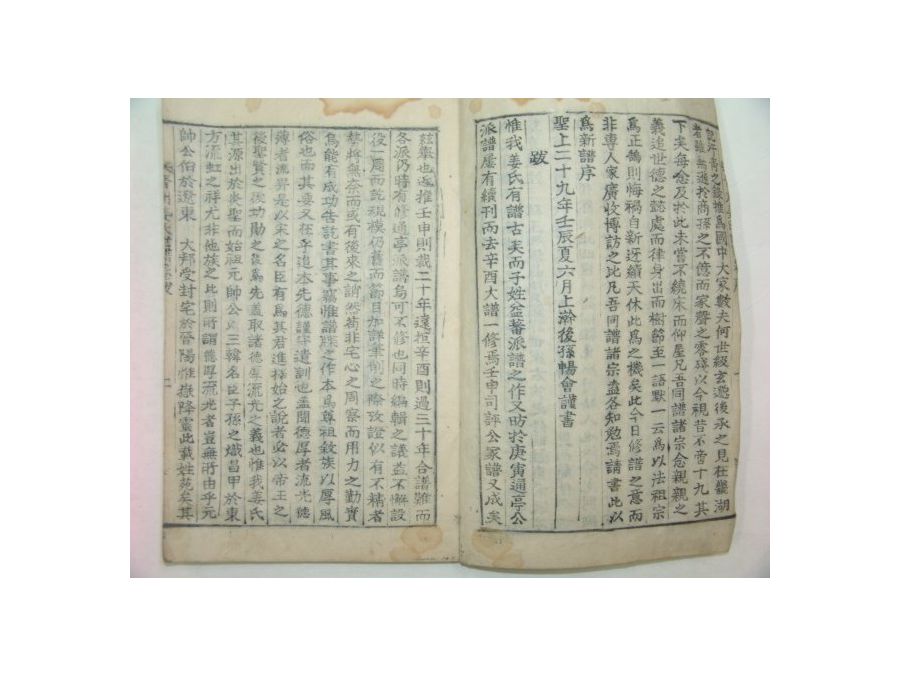 之後推爲國中大家數夫何世級玄邈後承之見在畿湖
者雖無遜於商孫之不億而家聲之零殘以今視昔不啻十九其
下来每念及於此未嘗不繞床而仰屋凡吾同譜諸宗念親親之
義追世德之懿處而律身出而樹節至一語默一云爲以法祖宗
爲正鵠則悔禍自新迓續天休此爲之機矣此今日修譜之意而
非專人家廣收博訪之比凡吾同譜諸宗盍各知勉焉請書此以
爲新譜序
聖上二十九年壬辰夏六月上澣後孫暢會謹書
跋
惟我姜氏有譜古矣而子姓益蕃派譜之作又昉於庚寅通亭公
派譜屢有續刊而去辛酉大譜一修焉壬申司評公家譜又成矣
玆擧也逐推壬申則載二十年遠揎辛酉則過三十年合譜雖而
各派仍時有修通亭派譜烏可不修也同時編輯之議益不懈設
役一周而訖規模仍舊而節目加詳筆削之際攷證似有不精者
勢將無奈而或有後來之誚然苟非宅心之周察而用力之勤實
烏能有成功告訖書其事竊惟譜牒之作本爲尊祖敦族以厚風
俗也而其要又在乎追本先德謹守遺訓也盖聞德厚者流光德
薄者流畀是以宋之名臣有爲其君進推始之說者必以帝王之
後聖賢之後功勛之裔爲先盖取諸德厚流光之義也惟我姜氏
其源出於炎聖而始祖元帥公以三韓名臣子孫之熾昌甲於東
方流虹之祥尤非他族之比則所謂德厚流光者豈無所由乎元
帥公伯於遼東 大邦受封宅於晉陽惟嶽降靈此載姓苑矣其